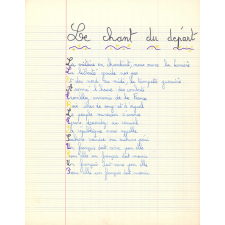 Le chant du départ
La victoire en chantant, nous ouvre la barrière
La liberté guide nos pas
Et du nord au midi, la trompette guerrière
A sonné l'heure des combats
Tremblez, ennemis de la France
Rois ivres de sang et d'orgueil
Le peuple souverain s'avance
Tyrans descendez au cercueil
La république nous appelle
Sachons vaincre ou sachons périr
Un français doit vivre pour elle
Pour elle un français doit mourir
Un français doit vivre pour elle
Pour elle un français doit mourir